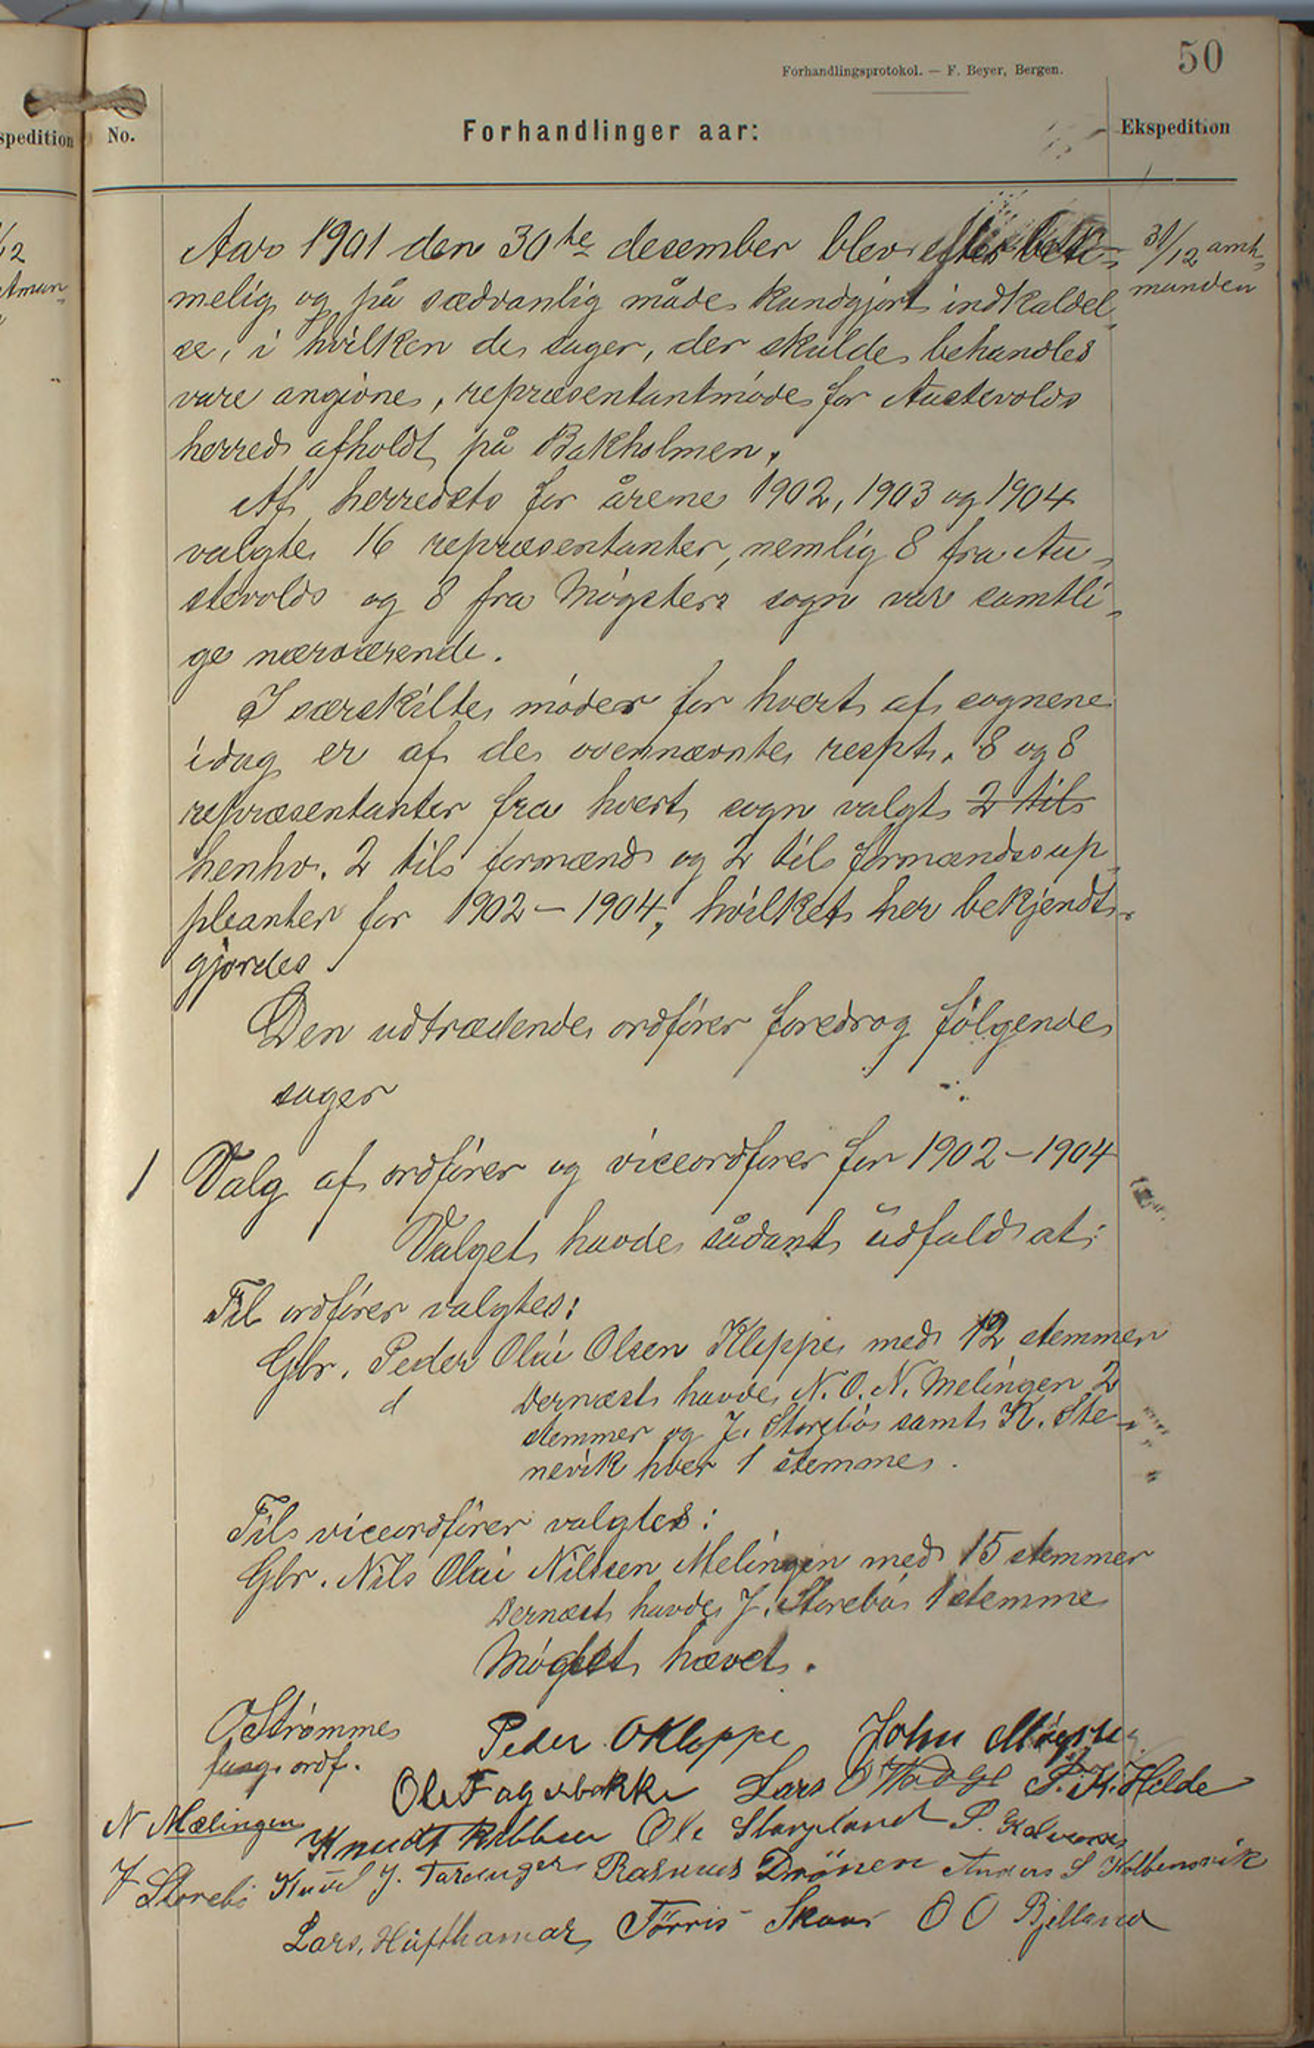 50
Forhandlingsprotokol. — F. Beyer, Bergen.
spedition
No.
Forhandlinger aar:
Ekspedition
Aar 1901 den 30te desember blev efter beti-
melig og på sædvanlig måde kundgjort indkaldel-
se, i hvilken de sager, der skulde behandles
vare angivne, repræsentantmøde for Austevolds
herred afholdt på Bakholmen.
31/12 amt-
manden
Af herredets for årene 1902, 1903 og 1904
valgte 16 repræsentanter, nemlig 8 fra Au-
stevolds og 8 fra Møgsters sogn var samtli-
ge nærværende.
I særskilte møder for hvert af sognene
idag er af de ovennævnte respt. 8 og 8
repræsentanter fra hvert sogn valgt 2 til
henhv. 2 til formænd og 2 til formændssup-
pleanter for 1902 – 1904, hvilket her bekjendt-
gjordes.
Den udtrædende ordfører foredrog følgende
sager
1 Valg af ordfører og viceordfører for 1902 – 1904
Valget havde sådant udfald at:
Til ordfører valgtes:
Gbr. Peder Olai Olsen Kleppe med 12 stemmer
Dernæst havde N. O. N. Melingen 2
stemmer og J. Storebø samt K. Ste-
nevik hver 1 stemme.
Til viceordfører valgtes:
Gbr. Nils Olai Nilssen Melingen med 15 stemmer
Dernæst havde J. Storebø 1 stemme
Mødet hævet.
O Strømme Peder O Kleppe John Møgster
fung. ordf.
Ole Fagerbakke Lars O P. K. Hilde
N Mælingen Knudt Ole P. Kalvenes
J Storebø Knud J. Taranger Rasmus Drønen Anders S Kolbensvik
Lars. Hufthamar Tørris Skaar O O Bjelland